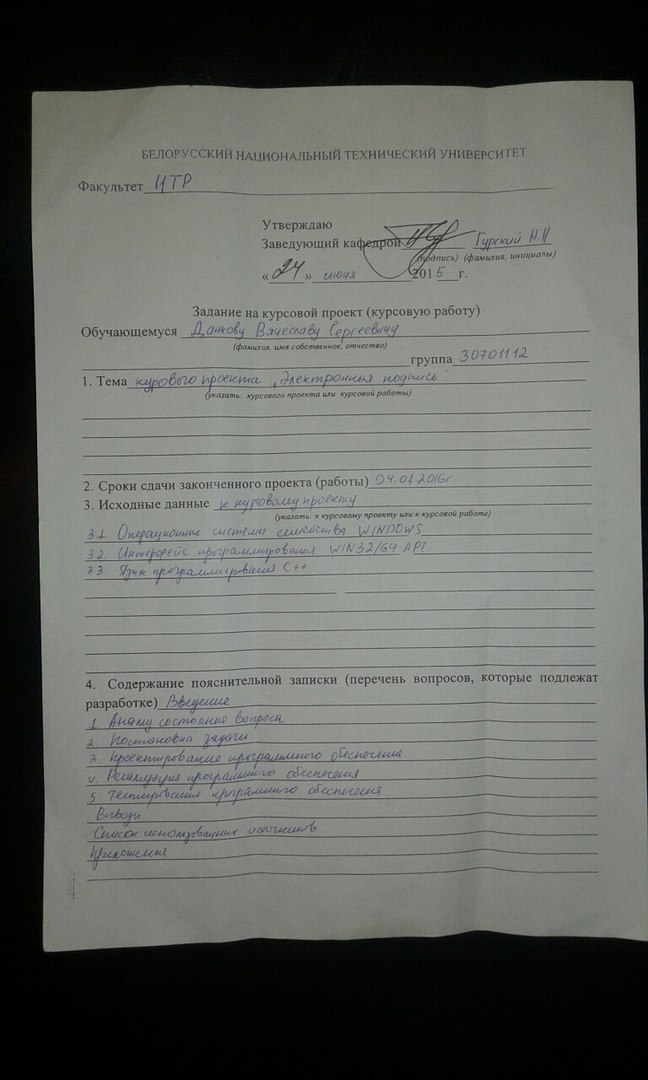 БЕЛОРУССКИЙ НАЦИОНАЛЬНЫЙ ТЕХНИЧЕСКИЙ УНИВЕРСИТЕТ
Факультет ИТР
Утверждаю
Заведующий кафедрой Гурский Н.Н
(подпись) (фамилия, инициалы)
«24» июня 2015 г.
Задание на курсовой проект (курсовую работу)
Обучающемуся Данкову Вячеславу Сергеевичу
(фамилия, имя собственное, отчество)
группа 30701112
1. Тема курового проекта „Электронная подпись
(указать: курсового проекта или курсовой работы)
2. Сроки сдачи законченного проекта (работы) 04.01.2016г
3. Исходные данные к куровому проекту
(указать: к курсовому проекту или к курсовой работе)
3.1. Операционные системы семейства WINDOWS
3.2. Интерфейс программирования WIN32/64 API
3.3. Язык программирования C++
4. Содержание пояснительной записки (перечень вопросов, которые подлежат
разработке) Введение
1. Анализ состояния вопроса
2. Постановка задачи
3. Проектирование программного обеспечения
4. Реализация программного обеспечения
5 Тестирование программного обеспечения
Выводы
Список использованных источников
Приложения